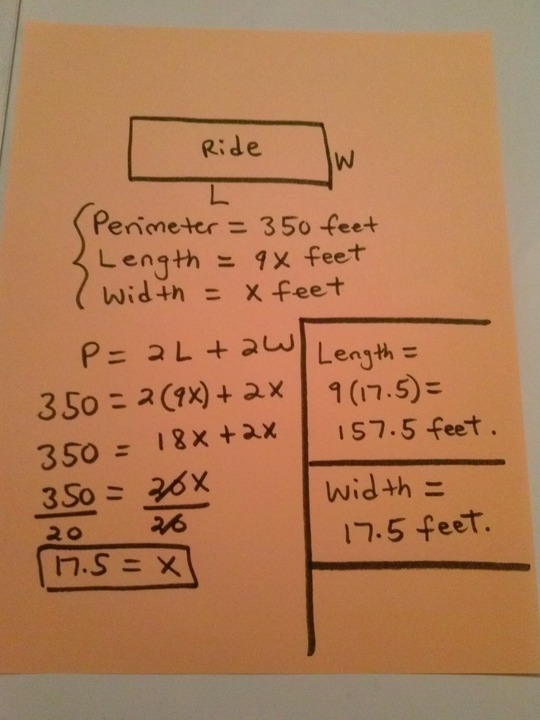 Ride
W
L
Perimeter = 350 feet
Length = 9X feet
Width = X feet
P = 2L + 2W
350 = 2(9X) + 2X
350 = 18X + 2X
350 = 20X
20 20
17.5 = X
Length =
9(17.5) =
157.5 feet.
Width =
17.5 feet.